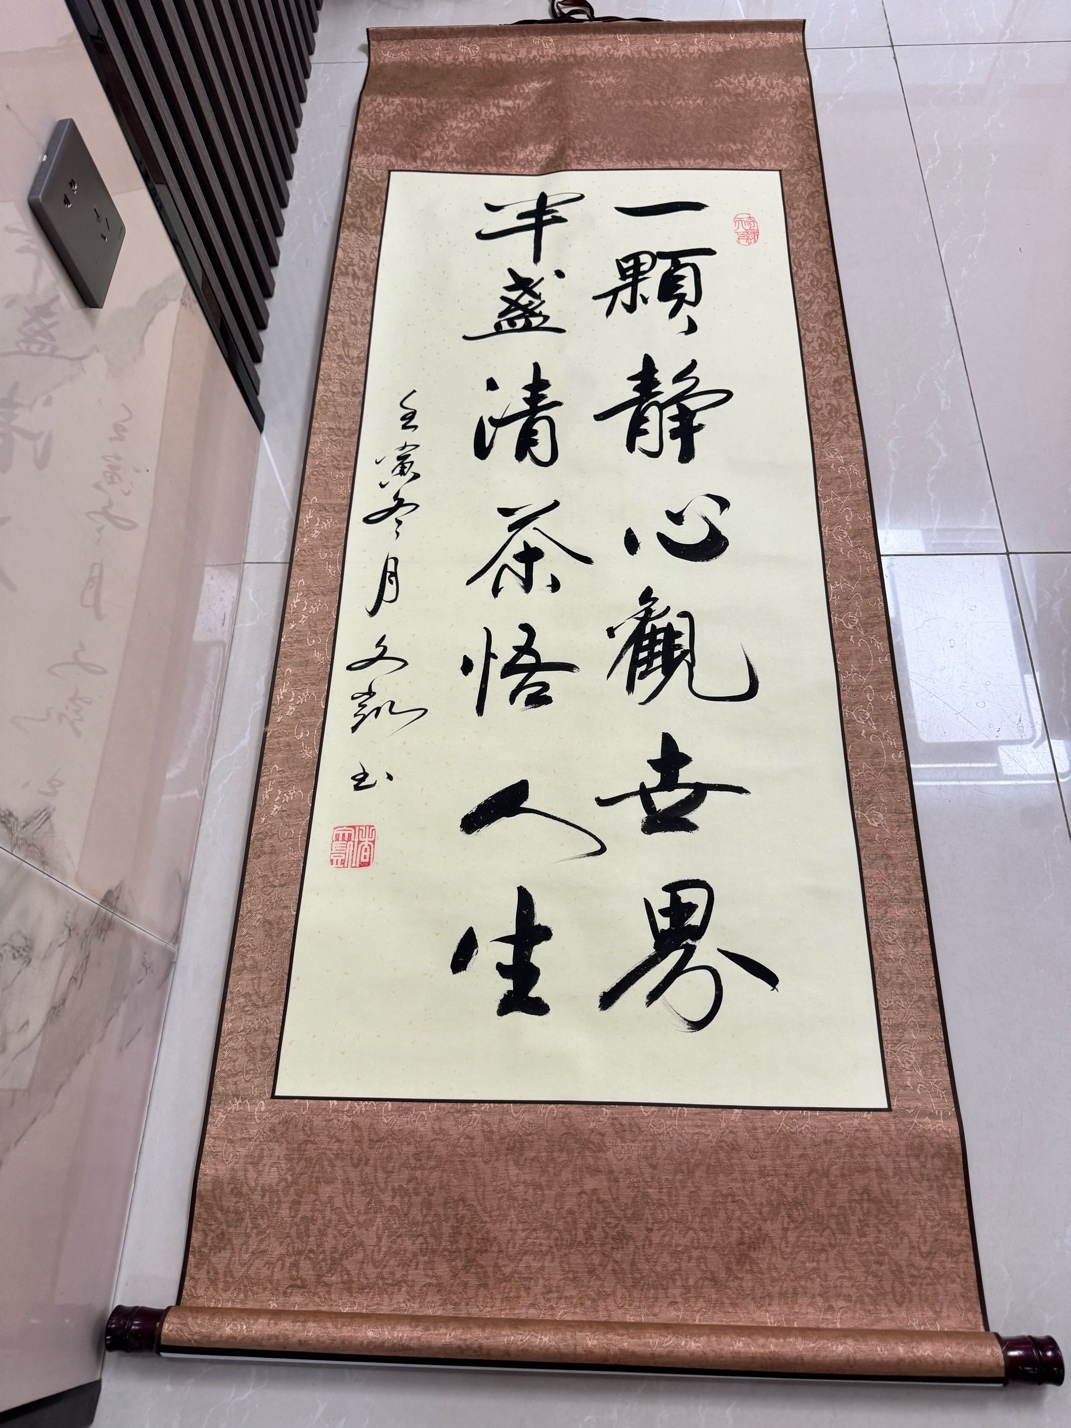 一顆靜心觀世界
半盞清茶悟人生
壬寅冬月文凱书